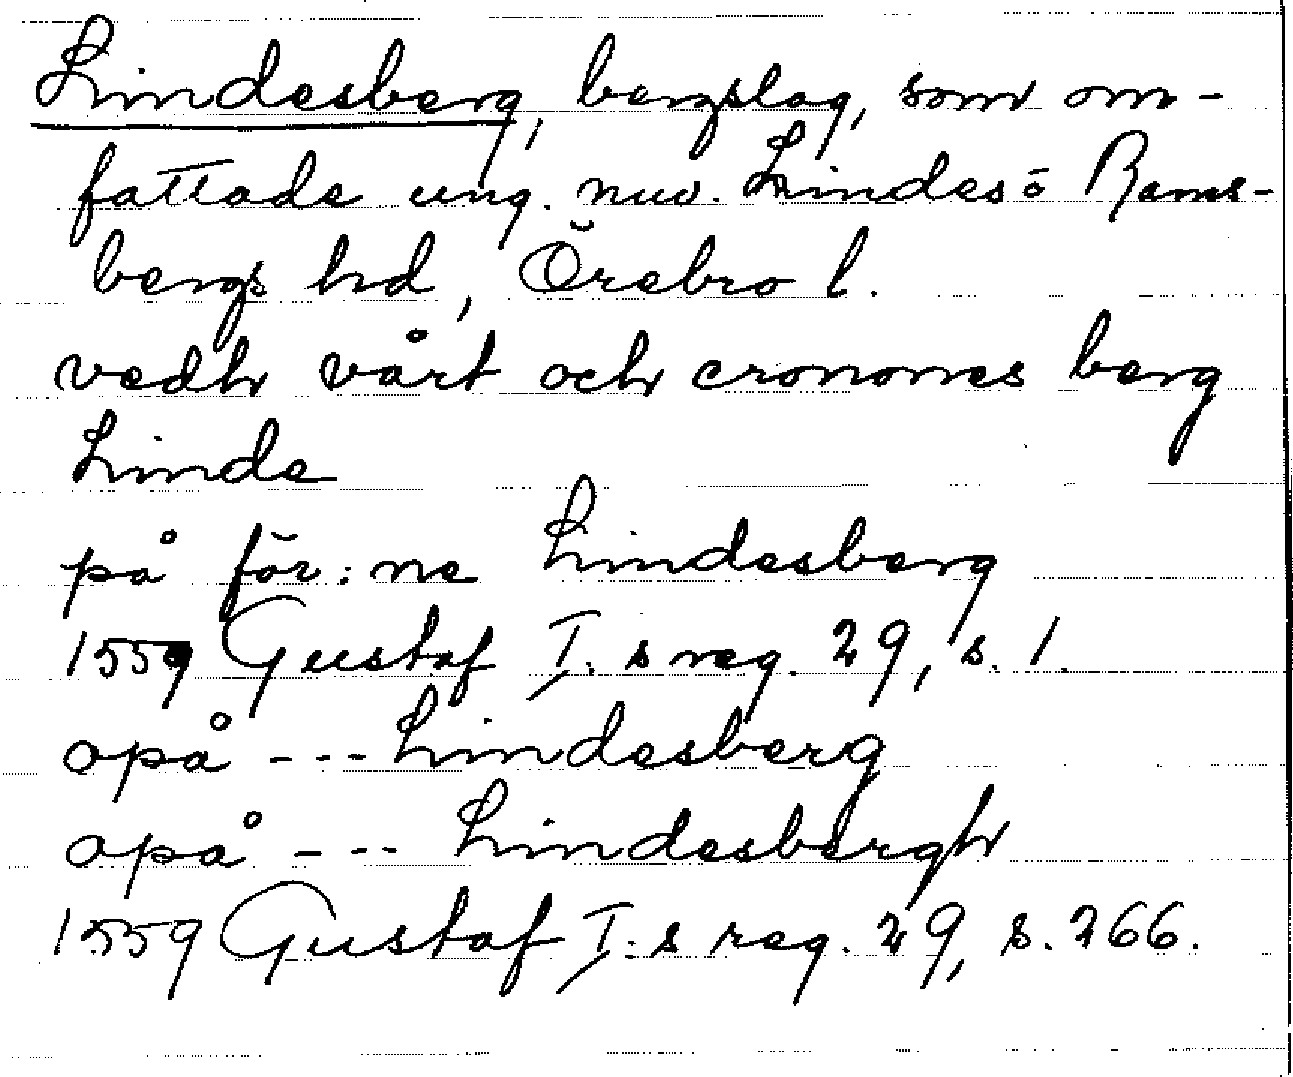 Lindesberg, bergslag, som om-
fattade ung. nuv. Lindes o Rams-
bergs hd, Örebro l.
vedh vårt och cronones berg
Linde
på för:ne Lindesberg
1559 Gustaf I.s reg. 29, s. 1.
opå --- Lindesberg
opå --- Lindesbergh
1559 Gustaf I.s reg. 29, s. 266.